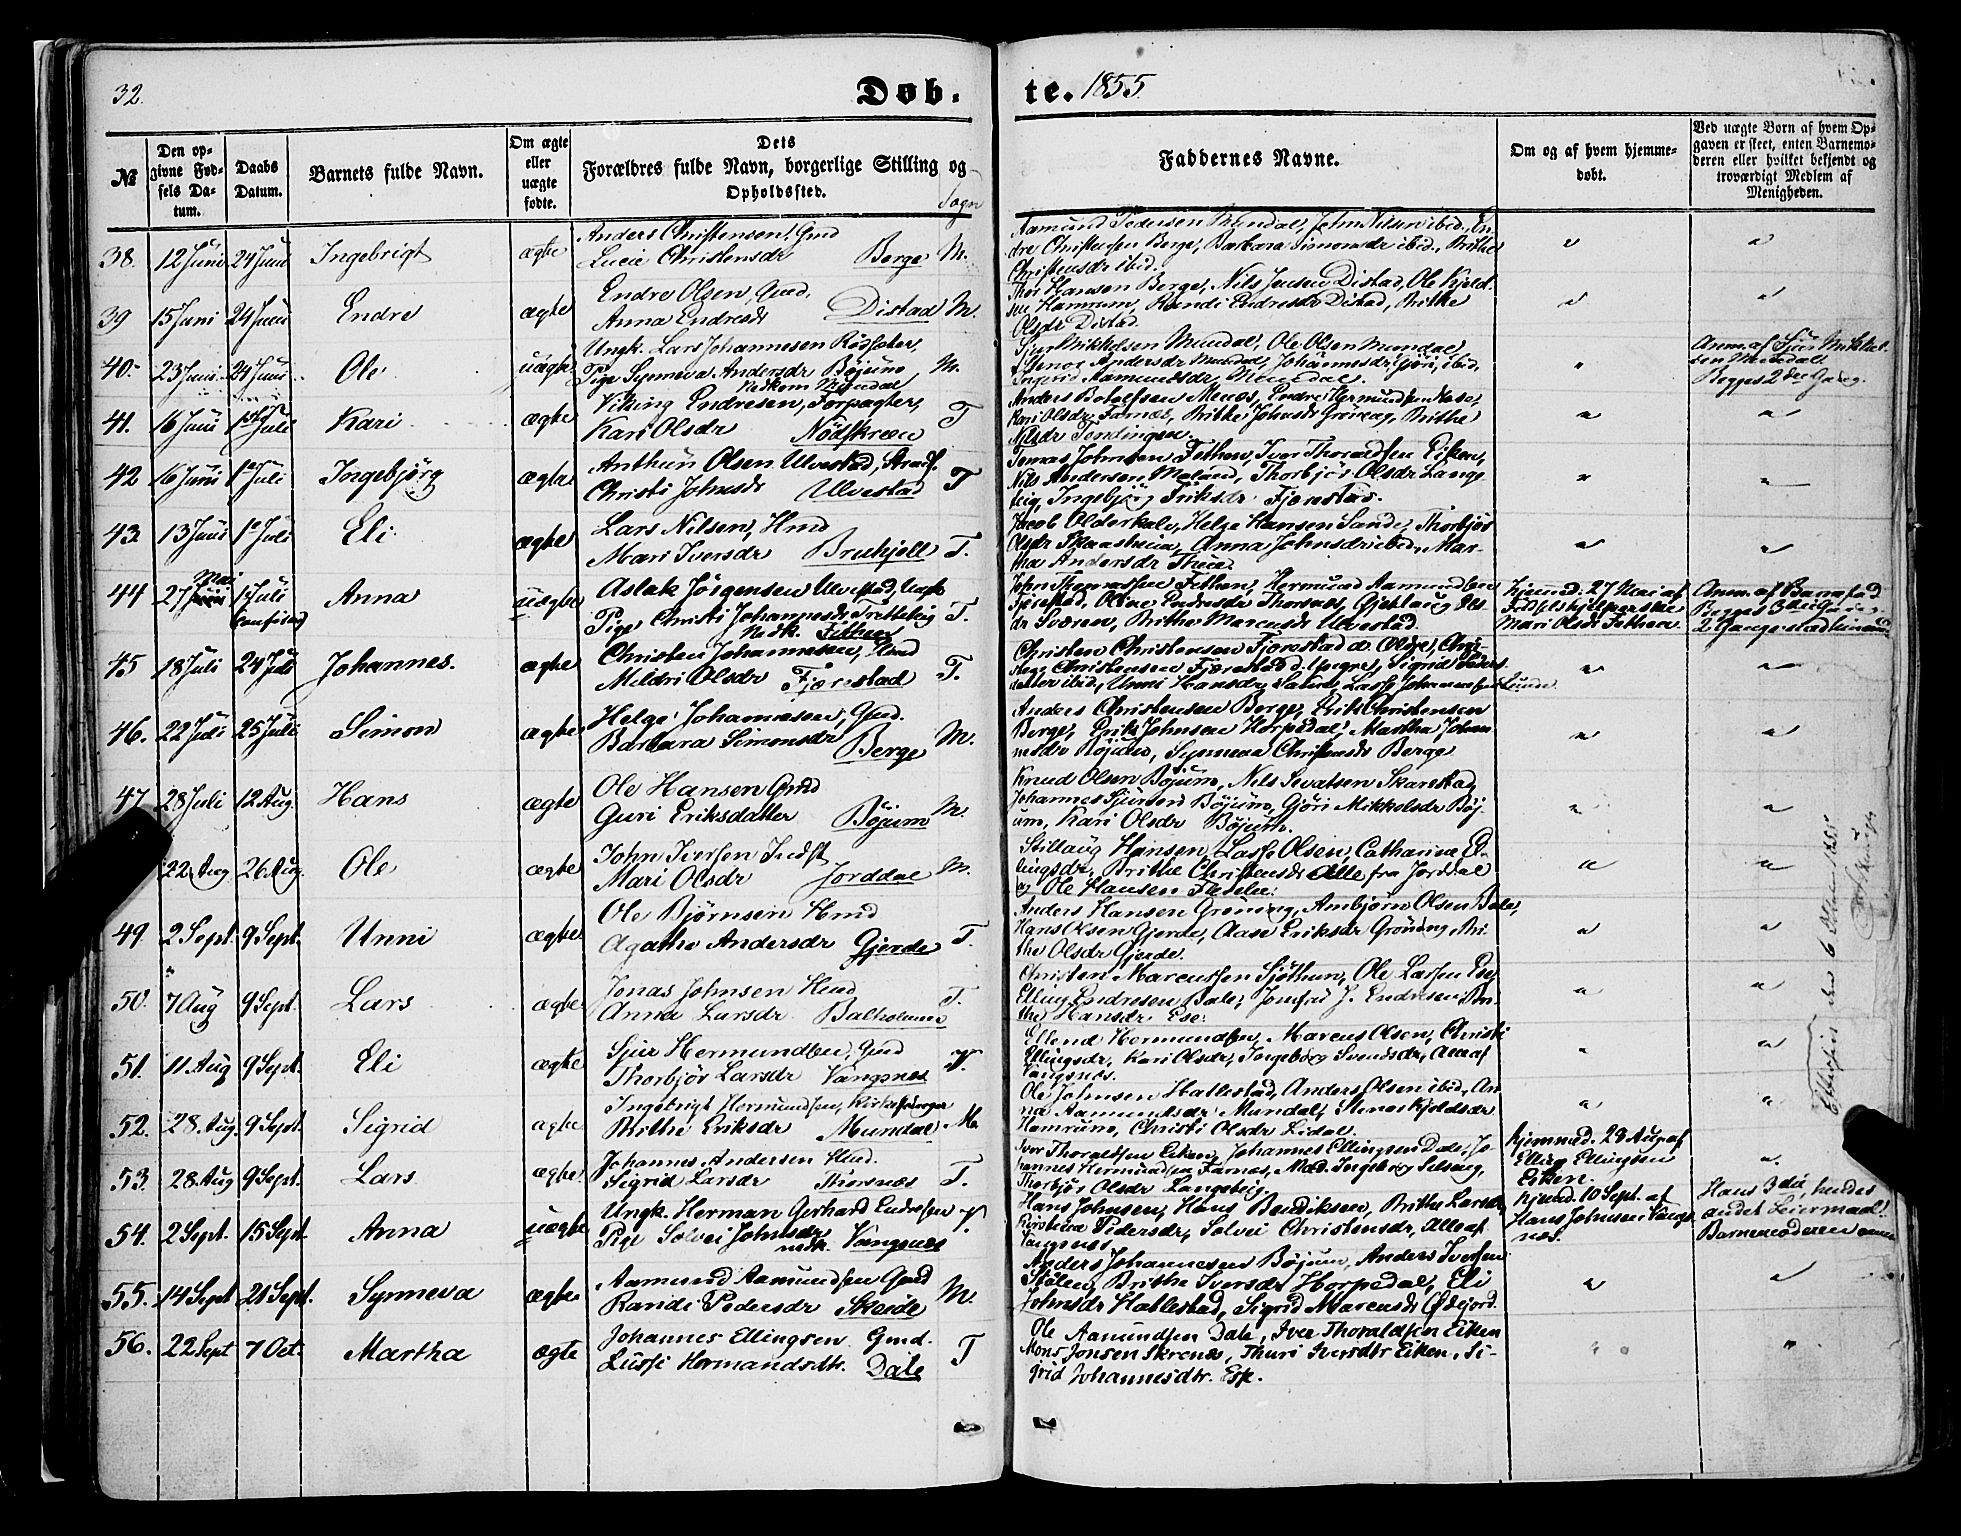 32.
Døb-
te. 1855.
№
Den opgivne Fødsels Datum.
Daabs Datum.
Barnets fulde Navn.
Om ægte eller uægte fødte.
Dets Forældres fulde Navn, borgerlige Stilling og Opholdssted.
Sogn
Faddernes Navne.
Om og af hvem hjemmedøbt.
Ved uægte Børn af hvem Opgaven er skeet, enten Barnemoderen eller hvilket bekjendt og troværdigt Medlem af Menigheden.
38. 12 Juni 24 Juni Ingebrigt ægte Anders Christensen, Gmd
Lucie Christensdr Berge M.
Aamund Pedersen Mundal, John Nilsen ibid, En-
dre Christensen Berge, Barbara Simonsdr ibid, Brithe
Christensdr ibid.
39 15 Juni 24 Juni Endre ægte Endre Olsen, Gmd.
Anna Endresdr Distad M.
Thor Hansen Berge, Nils Jensen Distad, Ole Kjeld-
sen Hamrum, Randi Endresdr Distad, Brithe
Olsdr Distad.
40. 23 Juni 24 Juni Ole uægte Ungk. Lars Johannesen
Pige Synneva Andersdr Bøjum M.
Nedkom Mundal
Mikkelsen Mundal, Ole Olsen Mundal,
Andersdr Mundal, Johannesdr ibid,
Aamundsdr,
Anm. af
Mundal.
Begges 2den Gang.
41. 16 Juni Juli Kari ægte Viking Endresen, Forpagter,
Kari Olsdr Nødskreen T
Anders Menes, Endre Hermundsen
Kari Olsdr Farnæs, Brithe Johnsdr Grøneng, Brithe
Nilsdr
42 16 Juni 1 Juli Ingebjørg ægte Anthun Olsen Ulvestad, Strands.
Christi Johnsdr Ulvestad T
Tomas Johnsen Fethen, Iver Thoraldsen Eiken,
Nils Andersen Meland, Thorbjør Olsdr Lang-
teig, Ingebjørg Eriksdr Fjærestad.
43. 13 Juni 1 Juli Eli ægte Lars Nilsen, Hmd
Mari Iversdr T.
Jacob, Helge Hansen Sande, Thorbjør
Olsdr, Anna Johnsdr ibid, Mar-
tha Andersdr
44 27 Mai 1 Juli Anna uægte Aslak Jørgensen Ulvestad, Ungk
Pige Christi Johannesdr T.
Nedk. Fethen
John Thomassen Fethen, Hermund Aamundsen
Fjærestad, Oline Endresdr Thorsnæs, Gjertlaug Ols-
dr Sværen, Brithe Marcusdr Ulvestad.
Hjemmed. 27 Mai af
Mari Olsdr Fethen.
Anm. af Barnefad.
45 18 Juli 24 Juli Johannes. ægte Christen Johannesen, Hmd
Mildri Olsdr Fjærestad T.
Christen Christensen Fjærestad d. Ældre, Chri-
sten Christensen Fjærestad d. Yngre, Sigrid
datter ibid, Unni Hansdr, Lasse Johannesen
46. 22 Juli 25 Juli Simon ægte Helge Johannesen, Gmd.
Barbara Simonsdr Berge M.
Anders Christensen Berge, Erik Christensen
Berge, Erik Johnsen Horpedal, Martha Johan-
nesdr Bøjum, Synneva Christensdr Berge
47 28 Juli 12 Aug. Hans ægte Ole Hansen Gmd
Guri Eriksdatter Bøjum M.
Knud Olsen Bøjum, Nils Sjvatsen Skarestad
Johannes Sjursen Bøjum, Gjøri Mikkelsdr Bøj-
um, Kari Olsdr Bøjum.
22 Aug 26 Aug. Ole ægte John Iversen Indst
Mari Olsdr Jorddal M.
Stillaug Hansen, Lasse Olsen, Catharina El-
lingsdr, Brithe Christensdr Alle fra Jorddal
og Ole Hansen
49. 2 Sept. 9 Sept. Unni ægte Ole Bjørnsen Hmd
Agathe Andersdr Gjerde T.
Anders Hansen Grøneng, Ambjørn Olsen Bale,
Hans Olsen Gjerde, Aase Eriksdr Grøneng, Bri-
the Olsdr Gjerde.
50. 7 Aug 9 Sept. Lars ægte Jonas Johnsen Hmd
Anna Larsdr Balholmen T.
Christen Marcussen Sjøthun, Ole Larsen Ese
Elling Endresen Bale, Jomfru J. Endresen, Bri-
the Hansdr Ese.
51. 11 Aug 9 Sept. Eli ægte Sjur Hermundsen, Gmd
Thorbjør Larsdr Vangsnes V.
Ellend Hermundsen, Marcus Olsen, Christi
Ellingsdr, Kari Olsdr, Ingeborg Svendsdr, Alle af
Vangsnes.
52. 28 Aug. 9 Sept. Sigrid ægte Ingebrigt Hermundsen, Kirkesanger
Brithe Eriksdr Mundal M.
Ole Johnsen Hatlestad, Anders Olsen ibid, An-
na Aamundsdr Mundal, Stenes Kjeldsdr
Hamrum, Christi Olsdr Lidal.
53. 28 Aug 9 Sept. Lars ægte Johannes Andersen Hmd.
Sigrid Larsdr Thorsnæs T.
Iver Thoraldsen Eiken, Johannes Ellingsen Dale, Jo-
hannes Hermundsen Farnæs, Mad. Ingeborg Selseng,
Thorbjør Olsdr Langeteig.
Hjemmed. 28 Aug af
Elling Ellingsen
Eiken.
54. 2 Sept. 15 Sept. Anna uægte Ungk. Herman Gerhard Endresen V.
Pige Solvei Johnsdr
nedk. Vangsnes
Hans Johnsen, Hans Bendiksen, Brithe Larsdr
Pedersdr, Solvei Christensdr, Alle af
Vangsnes
Hjemmed. 10 Sept. af
Hans Johnsen Vangs-
næs.
Hans 3die, hendes
andet Leiermaal.
Barnemoderen
55. 14 Sept 21 Sept. Synneva ægte Aamund Aamundsen Gmd
Randi Pedersdr Skeide M.
Anders Johannesen Bøjum, Anders Iversen
Stølen, Brithe Iversdr Horpedal, Eli
Johnsdr Hatlestad, Sigrid Marcusdr Ødejord.
56. 22 Sept 7 Oct. Martha ægte Johannes Ellingsen Gmd.
Lussi Hermandsdtr. Dale T
Ole Aamundsen Dale, Iver Thoraldsen Eiken
Mons Jonsen Skrenes, Thuri Iversdtr Eiken, Si-
grid Johannesdtr. Ese.